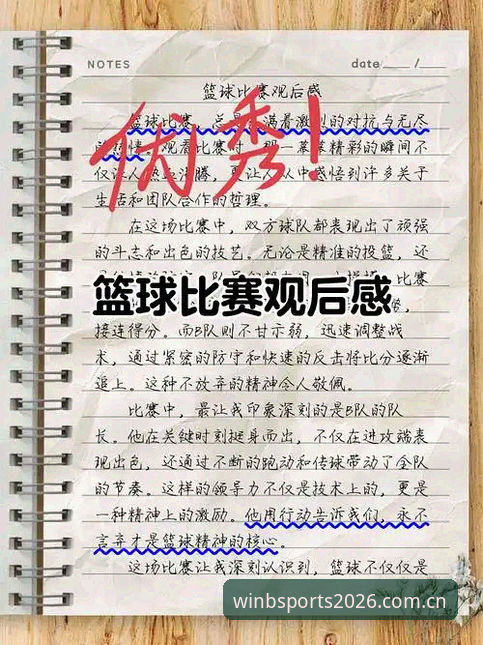 NOTES
date ___ / ___
篮球比赛观后感
优秀!
篮球比赛,总是 满着激烈的对抗与无尽
的热情。观看比赛时, 那一幕幕精彩的瞬间不
仅让人热血沸腾,更让人从中感悟到许多关于
生活和团队合作的哲理。
在这场比赛中,双方球队都表现出了顽强
的斗志和出色的技艺。无论是精准的投篮,还
比赛
篮球比赛观后感
接连得分。而B队则不甘示弱,迅速调整战
术,通过紧密的防守和快速的反击将比分逐渐
追上。这种不放弃的精神令人敬佩。
比赛中,最让我印象深刻的是B队的队
长。他在关键时刻挺身而出,不仅在进攻端表
现出色,还通过不断的跑动和传球带动了全队
的节奏。这样的领导力不仅是技术上的,更是
一种精神上的激励。他用行动告诉我们,永不
言弃才是篮球精神的核心。
这场比赛让我深刻认识到,篮球不仅仅是
winbsports2026.com.cn